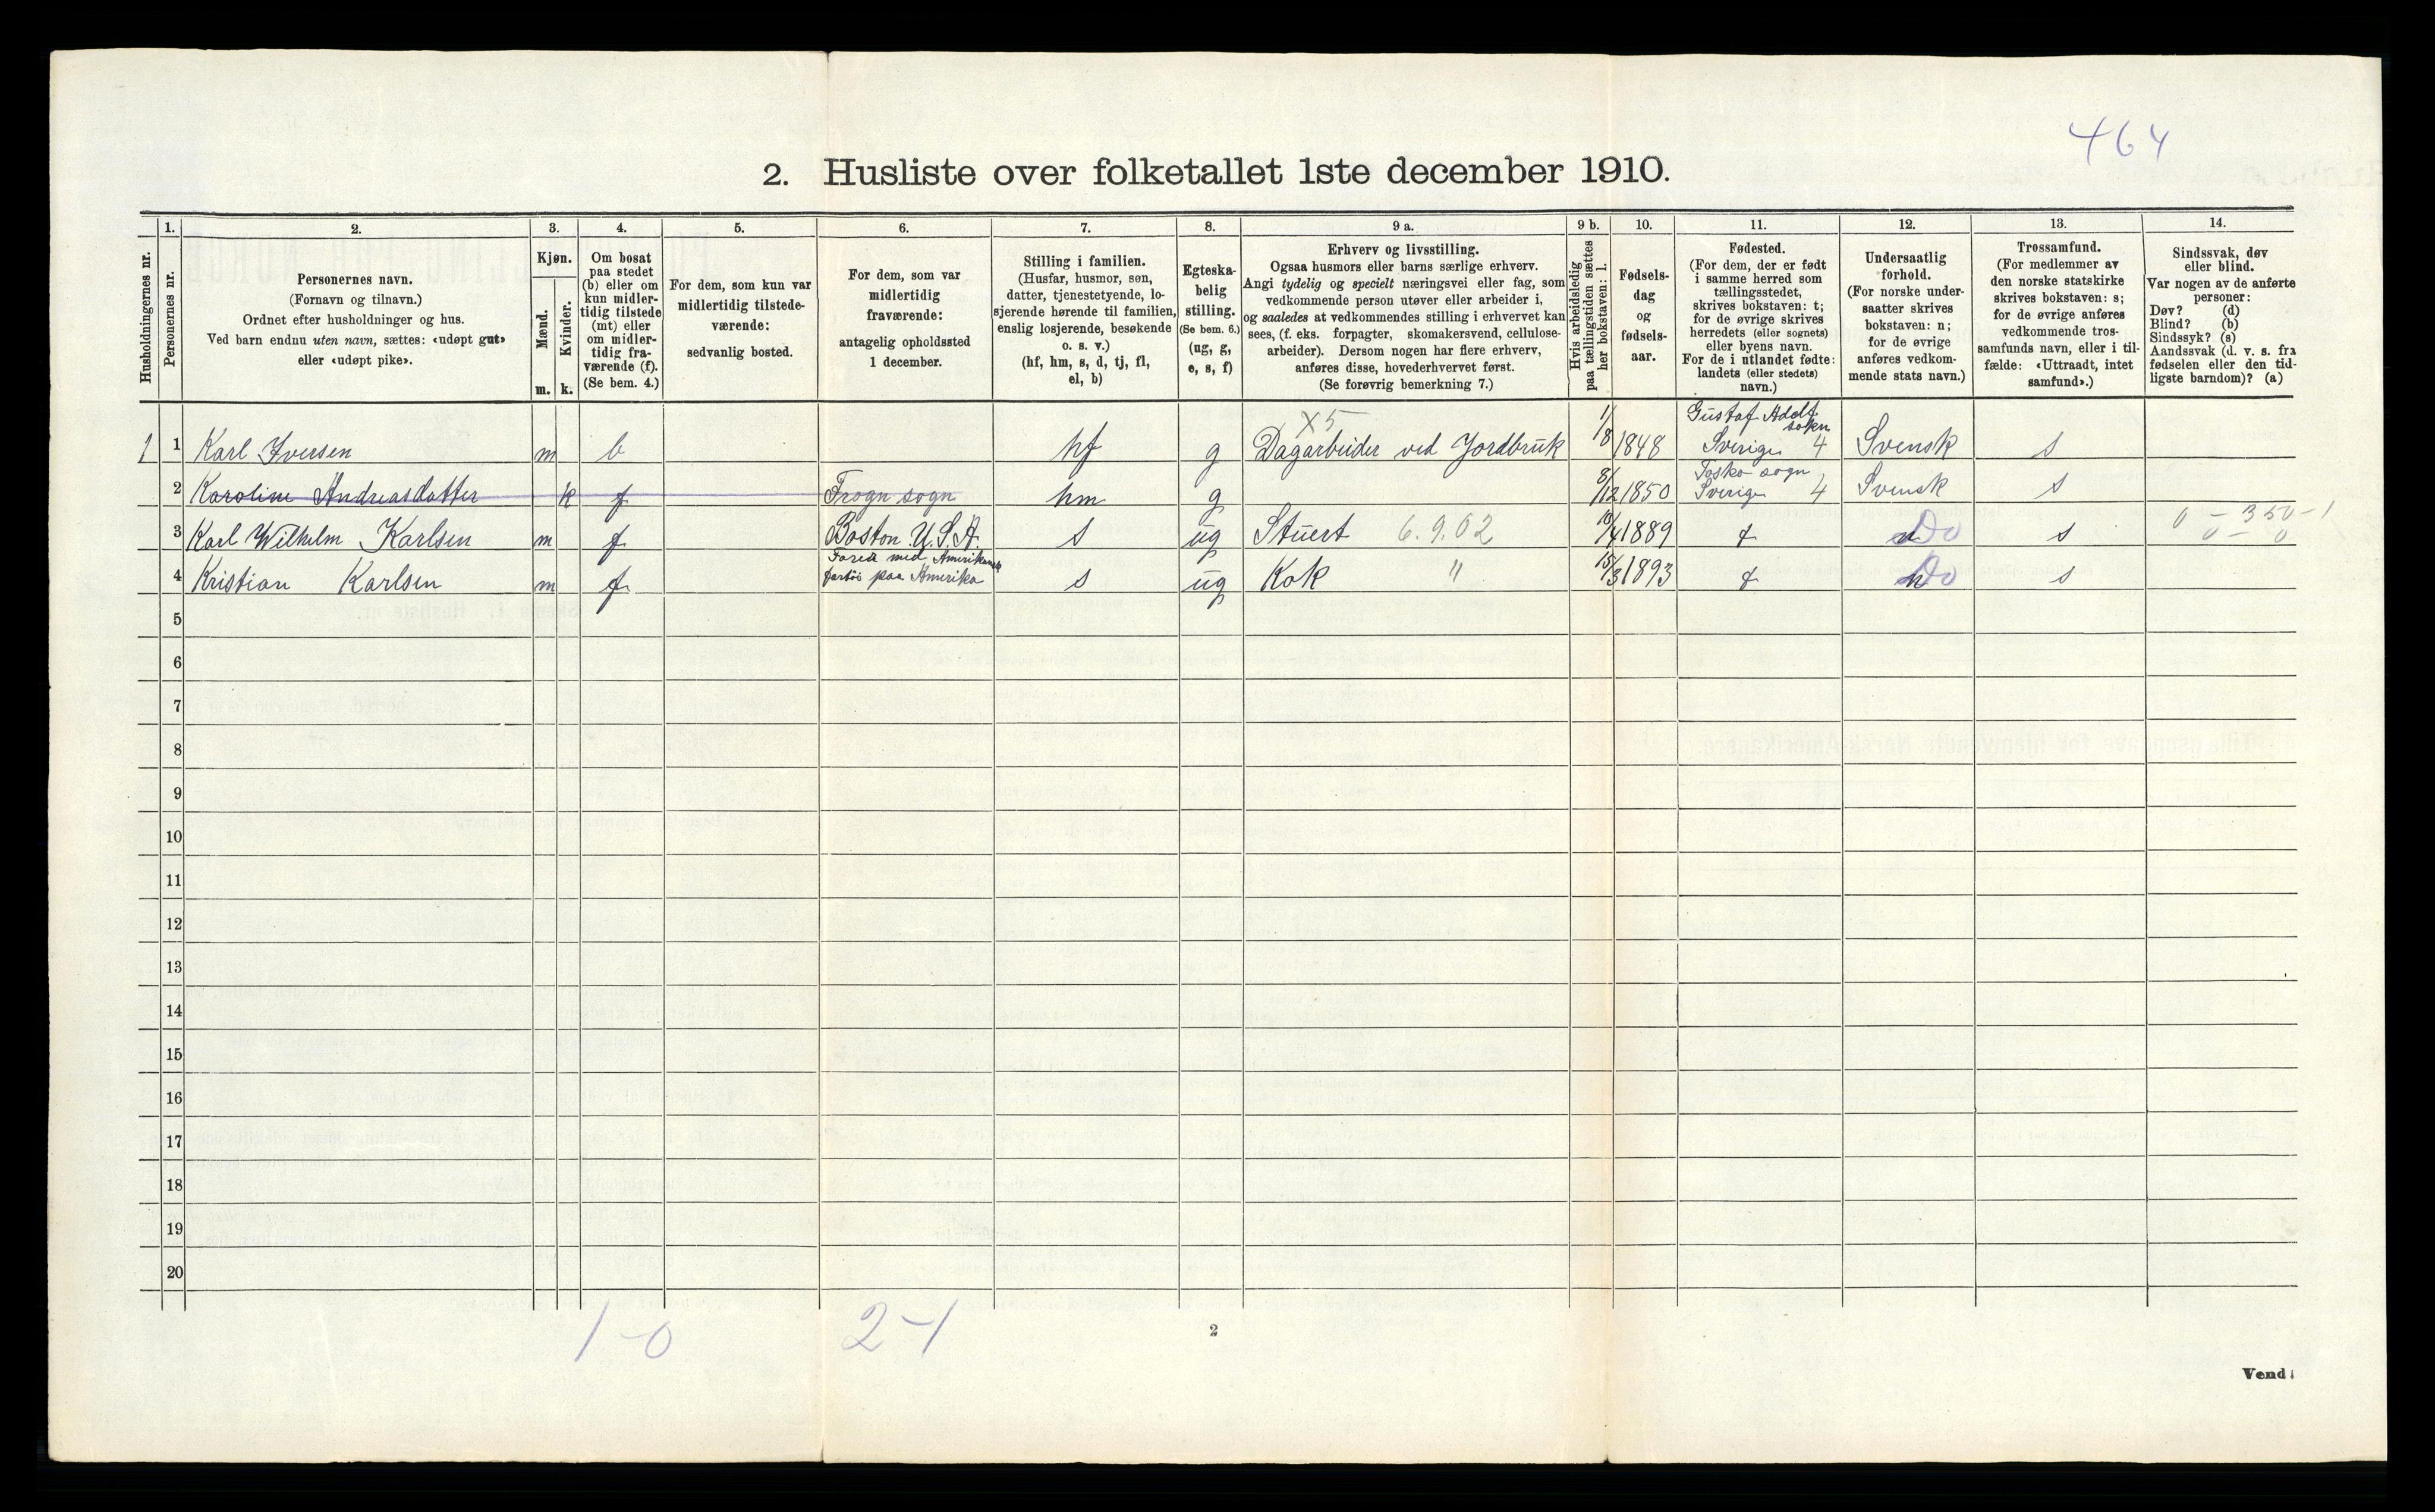 464
2. Husliste over folketallet 1ste december 1910.
Husholdningernes nr.
1. Personernes nr.
2. Personernes navn.
(Fornavn og tilnavn.)
Ordnet efter husholdninger og hus.
Ved barn endnu uten navn, sættes: «udøpt gut»
eller «udøpt pike».
3. Kjøn.
Mænd. m.
Kvinder. k.
4. Om bosat
paa stedet
(b) eller om
kun midler-
tidig tilstede
(mt) eller
om midler-
tidig fra-
værende (f).
(Se bem. 4.)
5. For dem, som kun var
midlertidig tilstede-
værende:
sedvanlig bosted.
6. For dem, som var
midlertidig
fraværende:
antagelig opholdssted
1 december.
7. Stilling i familien.
(Husfar, husmor, søn,
datter, tjenestetyende, lo-
sjerende hørende til familien,
enslig losjerende, besøkende
o. s. v.)
(hf, hm, s, d, tj, fl,
el, b)
8. Egteska-
belig
stilling.
(Se bem. 6.)
(ug, g,
e, s, f)
9 a. Erhverv og livsstilling.
Ogsaa husmors eller barns særlige erhverv.
Angi tydelig og specielt næringsvei eller fag, som
vedkommende person utøver eller arbeider i,
og saaledes at vedkommendes stilling i erhvervet kan
sees, (f. eks. forpagter, skomakersvend, cellulose-
arbeider). Dersom nogen har flere erhverv,
anføres disse, hovederhvervet først.
(Se forøvrig bemerkning 7.)
9 b. Hvis arbeidsledig
paa tællingstiden sættes
her bokstaven: l.
10. Fødsels-
dag
og
fødsels-
aar.
11. Fødested.
(For dem, der er født
i samme herred som
tællingsstedet,
skrives bokstaven: t;
for de øvrige skrives
herredets (eller sognets)
eller byens navn.
For de i utlandet fødte:
landets (eller stedets)
navn.)
12. Undersaatlig
forhold.
(For norske under-
saatter skrives
bokstaven: n;
for de øvrige
anføres vedkom-
mende stats navn.)
13. Trossamfund.
(For medlemmer av
den norske statskirke
skrives bokstaven: s;
for de øvrige anføres
vedkommende tros-
samfunds navn, eller i til-
fælde: «Uttraadt, intet
samfund».)
14. Sindssvak, døv
eller blind.
Var nogen av de anførte
personer:
Døv? (d)
Blind? (b)
Sindssyk? (s)
Aandssvak (d. v. s. fra
fødselen eller den tid-
ligste barndom)? (a)
X5 Gustaf Adolf sokn
1 1 Karl Iversen m b hf g Dagarbeider ved Jordbruk 1/8 1848 Sverige 4 Svensk s
Fosko sogn
2 Karoline Andreasdatter k f Frogn sogn hm g 8/12 1850 Sverige 4 Svensk s
3 Karl Wilhelm Karlsen m f Boston U.S.A. s ug Stuert 6.9.02 10/4 1889 t n Do s 0 – 350 – 1
0 – 0
Farer med Amerikansk
4 Kristian Karlsen m f fartöi paa Amerika s ug Kok " 15/3 1893 t n Do s
5
6
7
8
9
10
11
12
13
14
15
16
17
18
19
20
1–0 2–1
2
Vend!